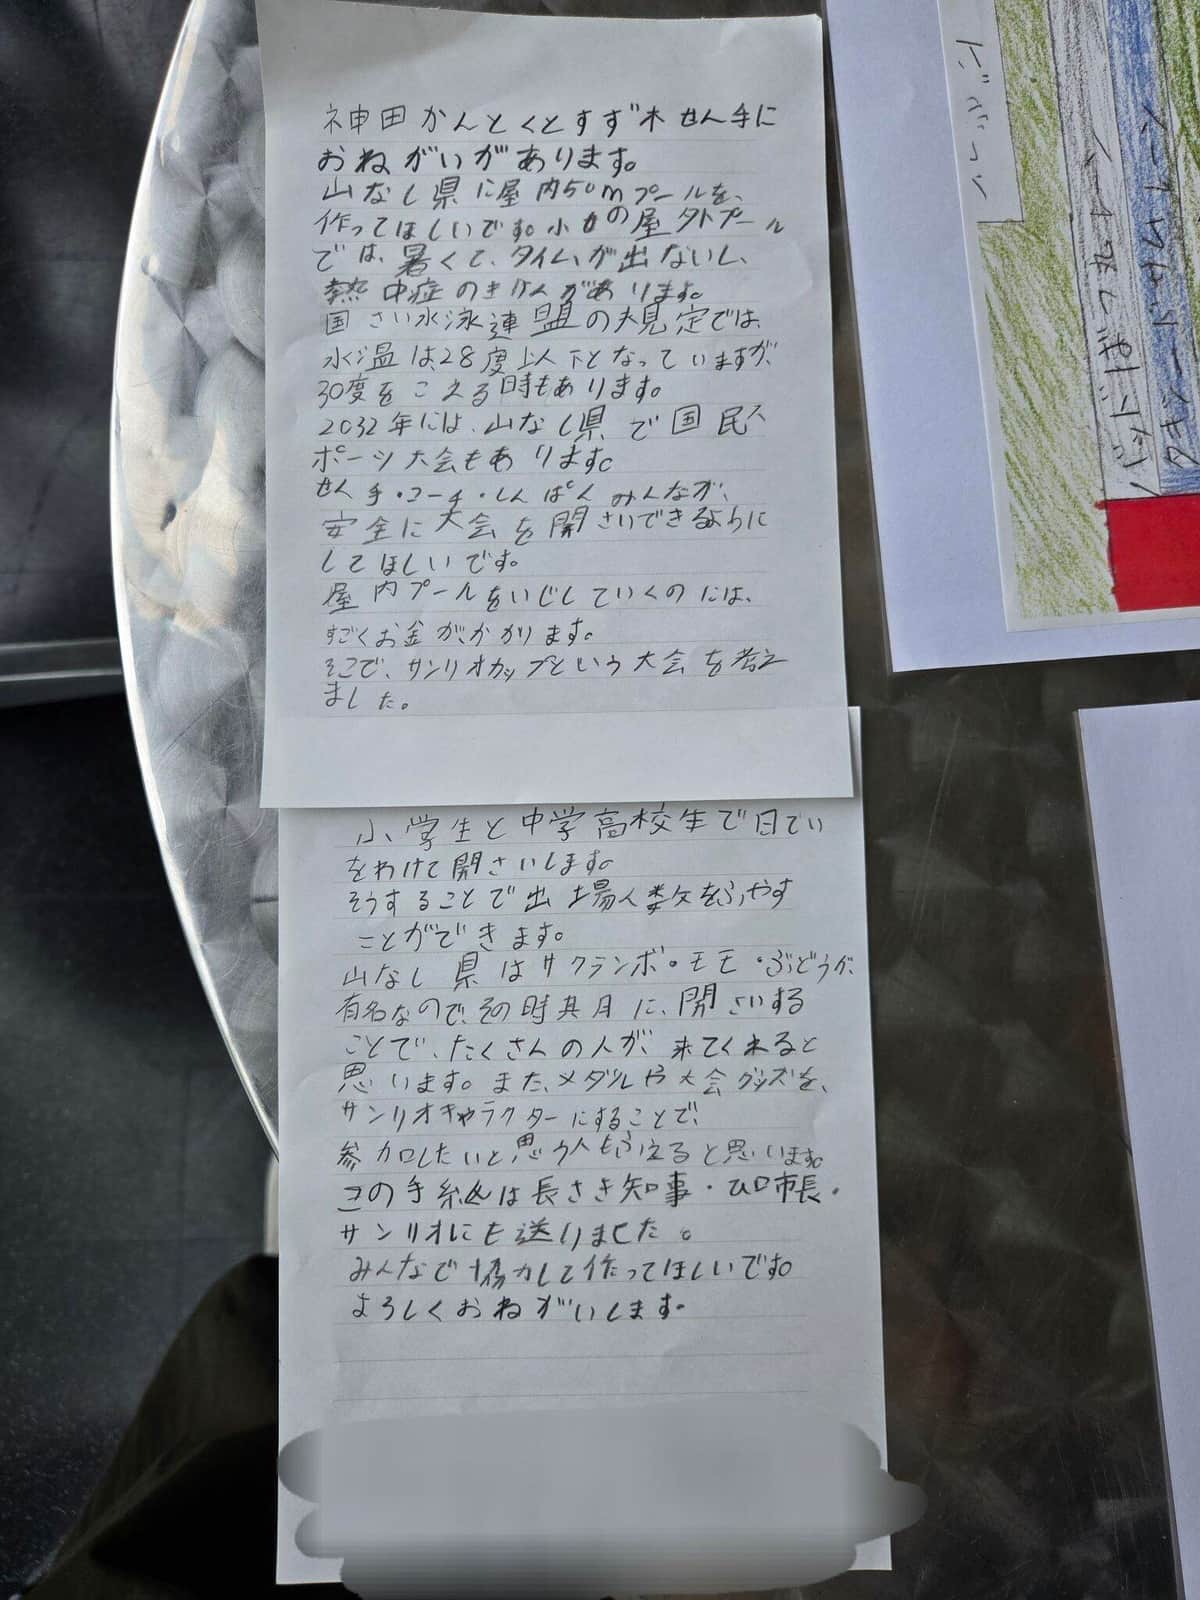 神田かんとくとすず木せん手に
おねがいがあります。
山なし県に屋内50mプールを、
作ってほしいです。小せの屋外プール
では、暑くて、タイムが出ないし、
熱中症のきけんがあります。
国さい水泳連盟の規定では、
水温は、28度以下となっていますが、
30度をこえる時もあります。
2032年には、山なし県で国民ス
ポーツ大会もあります。
せん手・コーチ・しんぱんみんなが、
安全に大会を開さいできるように
してほしいです。
屋内プールをいじしていくのには、
すごくお金がかかります。
そこで、サンリオカップという大会を考え
ました。
小学生と中学高校生で日てい
をわけて開さいします。
そうすることで出場人数をふやす
ことができます。
山なし県はサクランボ・モモ・ぶどうが、
有名なので、その時期に、開さいする
ことで、たくさんの人が、来てくれると
思います。また、メダルや大会グッズを、
サンリオキャラクターにすることで、
参加したいと思う人もふえると思います。
この手紙は長さき知事・ 市長・
サンリオにも送りました。
みんなで協力して作ってほしいです。
よろしくおねがいします。
トレッジ